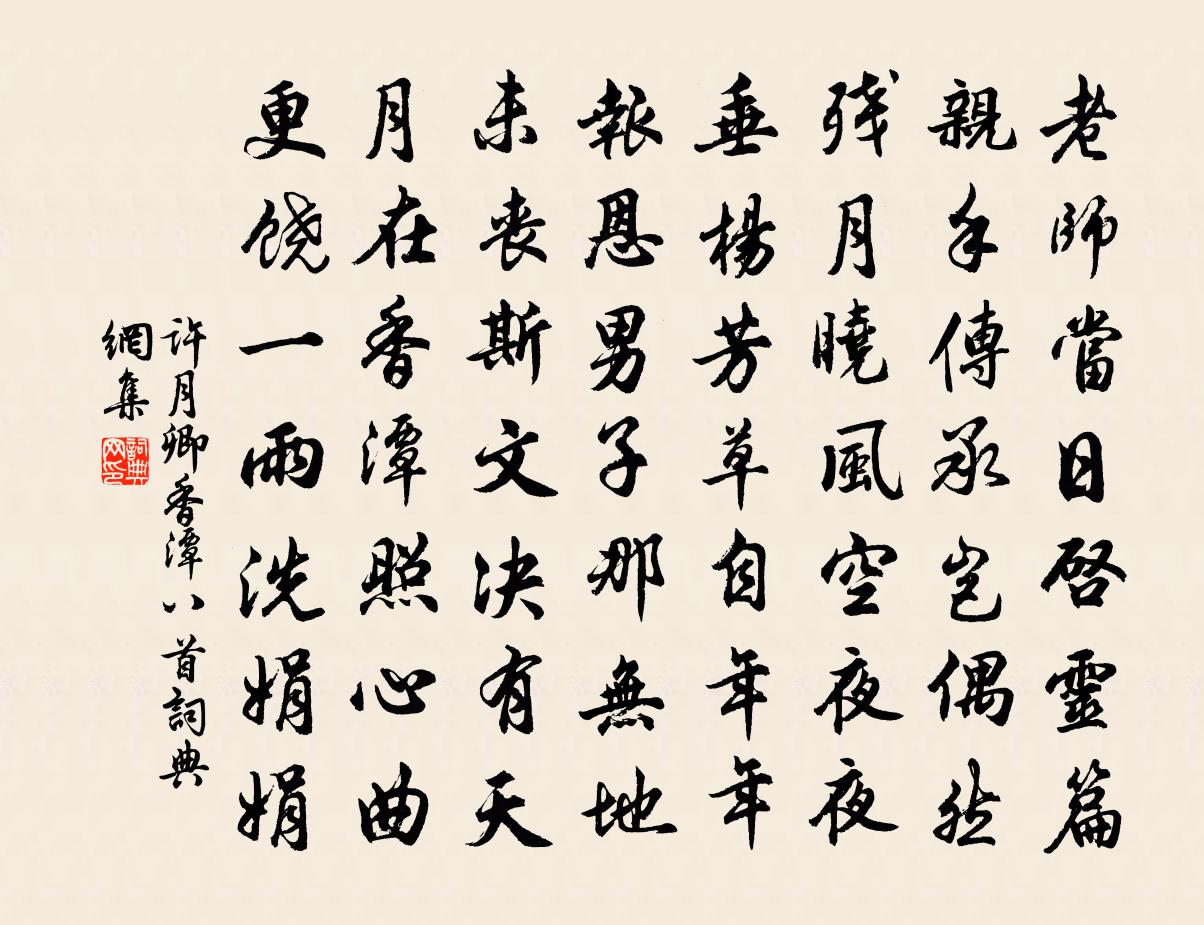 老師當日啓靈篇
親手傳承豈偶然
残月曉風空夜夜
垂楊芳草自年年
報恩男子那無地
未丧斯文决有天
月在香潭照心曲
更饶一雨洗娟娟
許月卿香潭八首詞典
網集
詞典網印